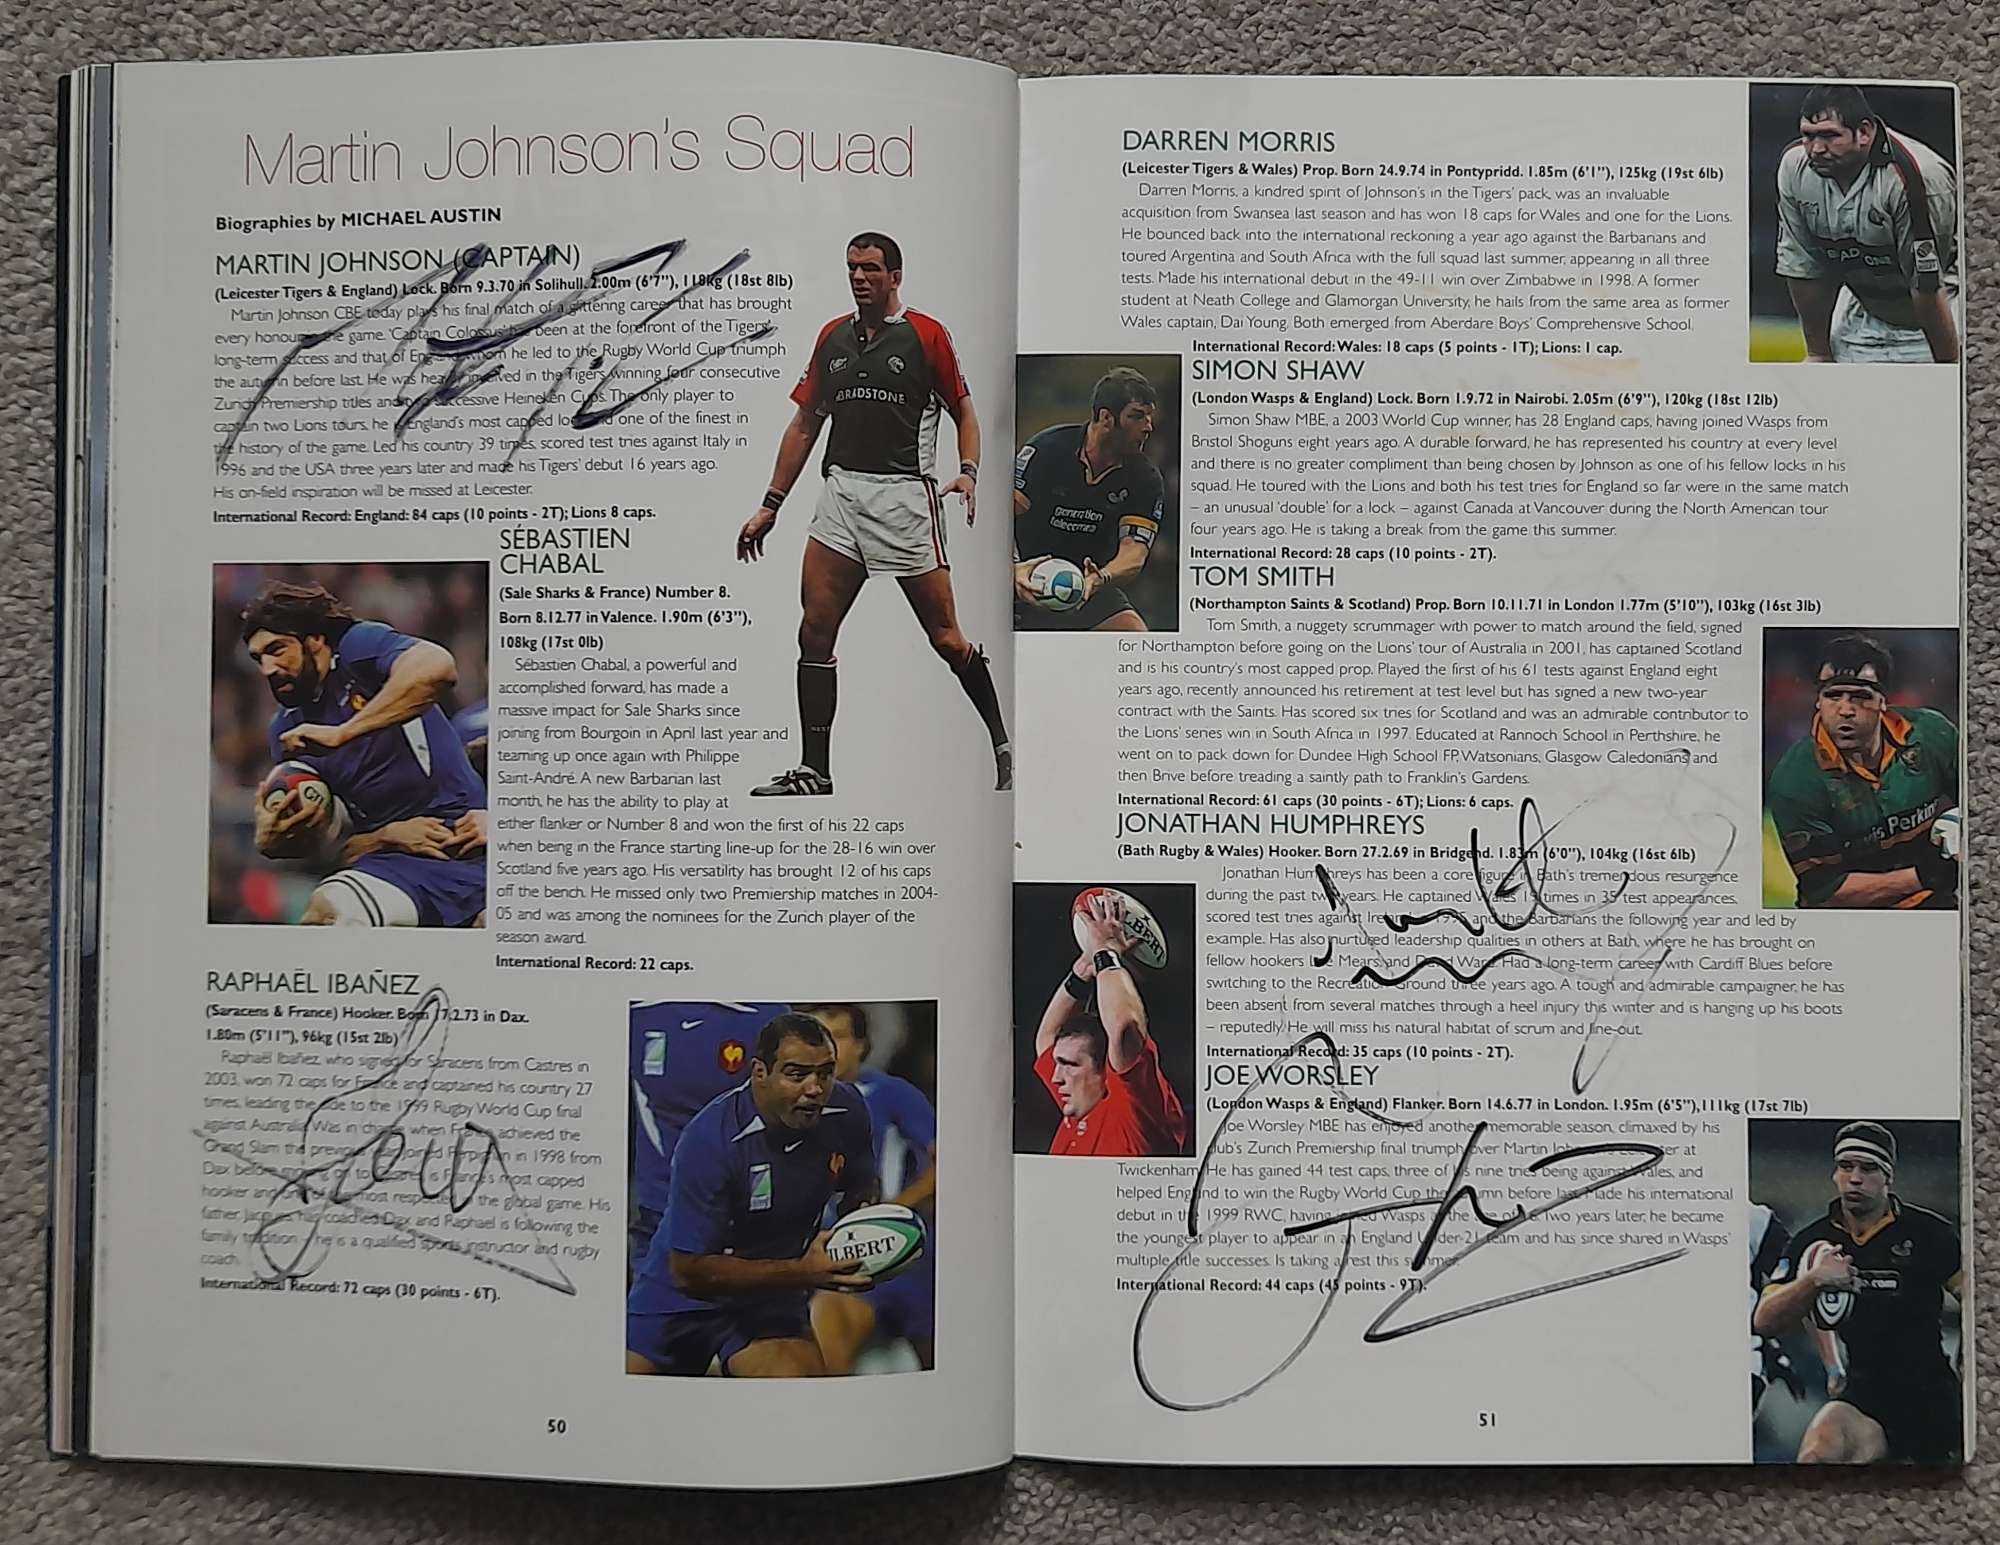 Martin Johnson's Squad
Biographies by MICHAEL AUSTIN
MARTIN JOHNSON (CAPTAIN)
(Leicester Tigers & England) Lock. Born 9.3.70 in Solihull. 2.00m (6'7"), 118kg (18st 8lb)
Martin Johnson CBE today plays his final match of a glittering career that has brought
every honour in the game. 'Captain Colossus' has been at the forefront of the Tigers'
long-term success and that of England whom he led to the Rugby World Cup triumph
the autumn before last. He was heavily involved in the Tigers winning four consecutive
Zurich Premiership titles and two successive Heineken Cups. The only player to
captain two Lions tours, he is England's most capped lock and one of the finest in
the history of the game. Led his country 39 times, scored test tries against Italy in
1996 and the USA three years later and made his Tigers' debut 16 years ago.
His on-field inspiration will be missed at Leicester.
International Record: England: 84 caps (10 points - 2T); Lions 8 caps.
SÉBASTIEN
CHABAL
(Sale Sharks & France) Number 8.
Born 8.12.77 in Valence. 1.90m (6'3"),
108kg (17st 0lb)
Sébastien Chabal, a powerful and
accomplished forward, has made a
massive impact for Sale Sharks since
joining from Bourgoin in April last year and
teaming up once again with Philippe
Saint-André. A new Barbarian last
month, he has the ability to play at
either flanker or Number 8 and won the first of his 22 caps
when being in the France starting line-up for the 28-16 win over
Scotland five years ago. His versatility has brought 12 of his caps
off the bench. He missed only two Premiership matches in 2004-
05 and was among the nominees for the Zurich player of the
season award.
International Record: 22 caps.
RAPHAËL IBAÑEZ
(Saracens & France) Hooker. Born 17.2.73 in Dax.
1.80m (5'11"), 96kg (15st 2lb)
Raphaël Ibañez, who signed for Saracens from Castres in
2003, won 72 caps for France and captained his country 27
times, leading the side to the 1999 Rugby World Cup final
against Australia. Was in charge when France achieved the
Grand Slam the previous year. Joined Perpignan in 1998 from
Dax before moving on to Castres. Is France's most capped
hooker and one of the most respected in the global game. His
father, Jacques, has coached Dax and Raphael is following the
family tradition - he is a qualified sports instructor and rugby
coach.
International Record: 72 caps (30 points - 6T).
50
DARREN MORRIS
(Leicester Tigers & Wales) Prop. Born 24.9.74 in Pontypridd. 1.85m (6'1"), 125kg (19st 6lb)
Darren Morris, a kindred spirit of Johnson's in the Tigers' pack, was an invaluable
acquisition from Swansea last season and has won 18 caps for Wales and one for the Lions.
He bounced back into the international reckoning a year ago against the Barbarians and
toured Argentina and South Africa with the full squad last summer, appearing in all three
tests. Made his international debut in the 49-11 win over Zimbabwe in 1998. A former
student at Neath College and Glamorgan University, he hails from the same area as former
Wales captain, Dai Young. Both emerged from Aberdare Boys' Comprehensive School.
International Record: Wales: 18 caps (5 points - 1T); Lions: 1 cap.
SIMON SHAW
(London Wasps & England) Lock. Born 1.9.72 in Nairobi. 2.05m (6'9"), 120kg (18st 12lb)
Simon Shaw MBE, a 2003 World Cup winner, has 28 England caps, having joined Wasps from
Bristol Shoguns eight years ago. A durable forward, he has represented his country at every level
and there is no greater compliment than being chosen by Johnson as one of his fellow locks in his
squad. He toured with the Lions and both his test tries for England so far were in the same match
– an unusual 'double' for a lock – against Canada at Vancouver during the North American tour
four years ago. He is taking a break from the game this summer.
International Record: 28 caps (10 points - 2T).
TOM SMITH
(Northampton Saints & Scotland) Prop. Born 10.11.71 in London 1.77m (5'10"), 103kg (16st 3lb)
Tom Smith, a nuggety scrummager with power to match around the field, signed
for Northampton before going on the Lions' tour of Australia in 2001, has captained Scotland
and is his country's most capped prop. Played the first of his 61 tests against England eight
years ago, recently announced his retirement at test level but has signed a new two-year
contract with the Saints. Has scored six tries for Scotland and was an admirable contributor to
the Lions' series win in South Africa in 1997. Educated at Rannoch School in Perthshire, he
went on to pack down for Dundee High School FP, Watsonians, Glasgow Caledonians and
then Brive before treading a saintly path to Franklin's Gardens.
International Record: 61 caps (30 points - 6T); Lions: 6 caps.
JONATHAN HUMPHREYS
(Bath Rugby & Wales) Hooker. Born 27.2.69 in Bridgend. 1.83m (6'0"), 104kg (16st 6lb)
Jonathan Humphreys has been a core figure in Bath's tremendous resurgence
during the past two years. He captained Wales 19 times in 35 test appearances,
scored test tries against Ireland in 1995 and the Barbarians the following year and led by
example. Has also nurtured leadership qualities in others at Bath, where he has brought on
fellow hookers Lee Mears and David Ward. Had a long-term career with Cardiff Blues before
switching to the Recreation Ground three years ago. A tough and admirable campaigner, he has
been absent from several matches through a heel injury this winter and is hanging up his boots
– reputedly! He will miss his natural habitat of scrum and line-out.
International Record: 35 caps (10 points - 2T).
JOE WORSLEY
(London Wasps & England) Flanker. Born 14.6.77 in London. 1.95m (6'5"), 111kg (17st 7lb)
Joe Worsley MBE has enjoyed another memorable season, climaxed by his
club's Zurich Premiership final triumph over Martin at
Twickenham. He has gained 44 test caps, three of his nine tries being against Wales, and
helped England to win the Rugby World Cup the autumn before last. Made his international
debut in the 1999 RWC, having joined Wasps at the age of 16. Two years later, he became
the youngest player to appear in an England Under-21 team and has since shared in Wasps'
multiple title successes. Is taking a rest this summer.
International Record: 44 caps (45 points - 9T).
51
BRADSTONE
GILBERT
generation
telecom